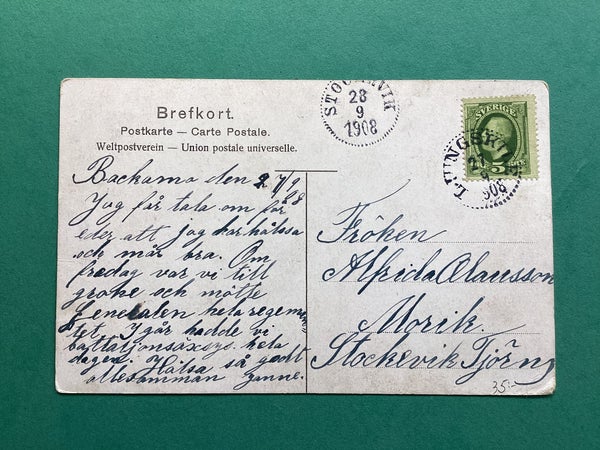 Brefkort.
Postkarte — Carte Postale.
Weltpostverein — Union postale universelle.
STOCKEVIK
28
9
1908
SVERIGE
5
LJUNGSKILE
27
9
1908
Backamo den 27/9 08
Jag får tala om för
eder att jag har hälsa
och mår bra. Om
fredag var vi till
och mötte
Generalen hela regemen
tet. Igår hadde vi
hela
dagen. Hälsa så godt
allesamman Janne.
Fröken
Alfrida Olausson
Morik.
Stockevik Tjörn
35:-